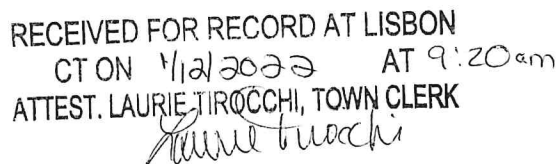 RECEIVED FOR RECORD AT LISBON
CT ON 1/12/2022 AT 9:20am
ATTEST. LAURIE TIROCCHI, TOWN CLERK
Laurie Tirocchi